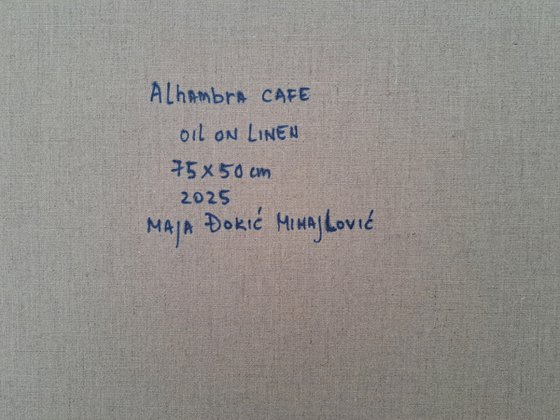 Alhambra CAFE
OIL ON LINEN
75x50 cm
2025
MAJA ĐOKIĆ MIHAJLOVIĆ